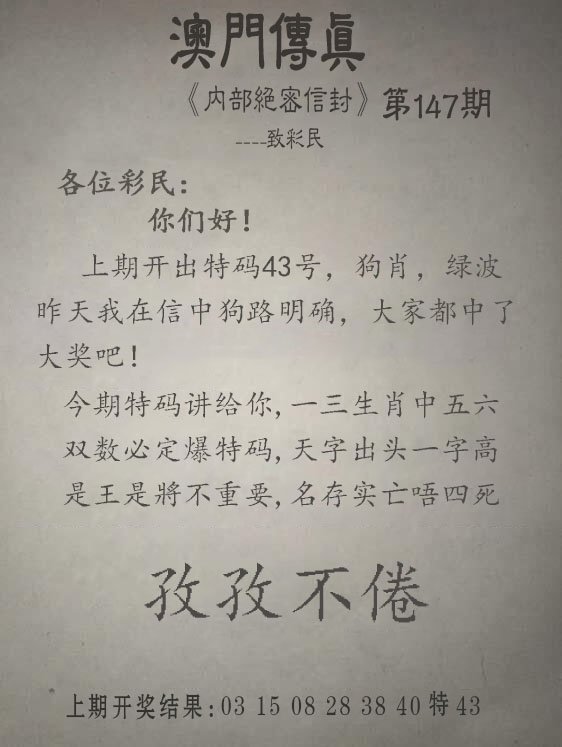 澳門傳真
《内部絕密信封》第147期
----致彩民
各位彩民：
你们好！
上期开出特码43号，狗肖，绿波
昨天我在信中狗路明确，大家都中了
大奖吧！
今期特码讲给你,一三生肖中五六
双数必定爆特码,天字出头一字高
是王是將不重要,名存实亡唔四死
孜孜不倦
上期开奖结果:03 15 08 28 38 40 特 43